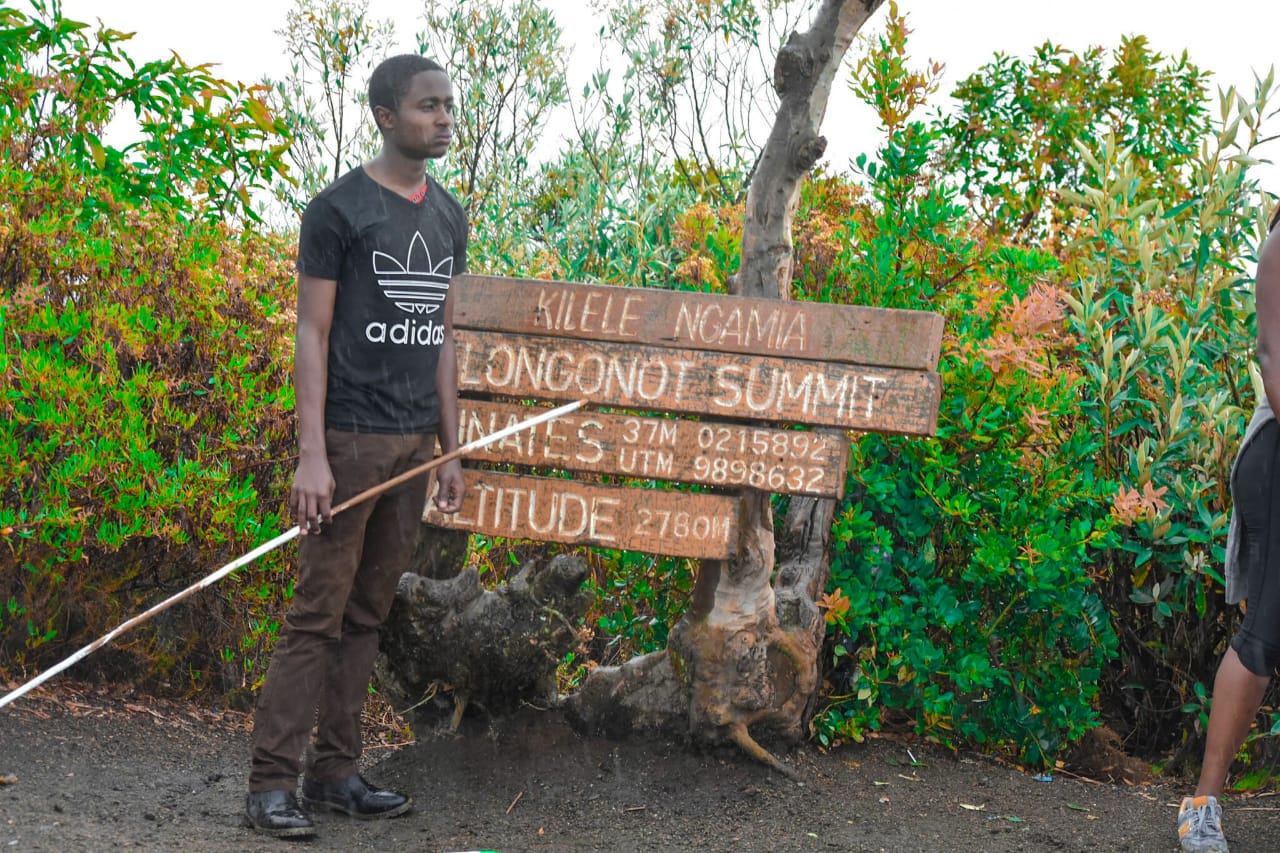 adidas
KILELE NGAMIA
LONGONOT SUMMIT
INATES 37M 0215892
UTM 9898632
ALTITUDE 2780M